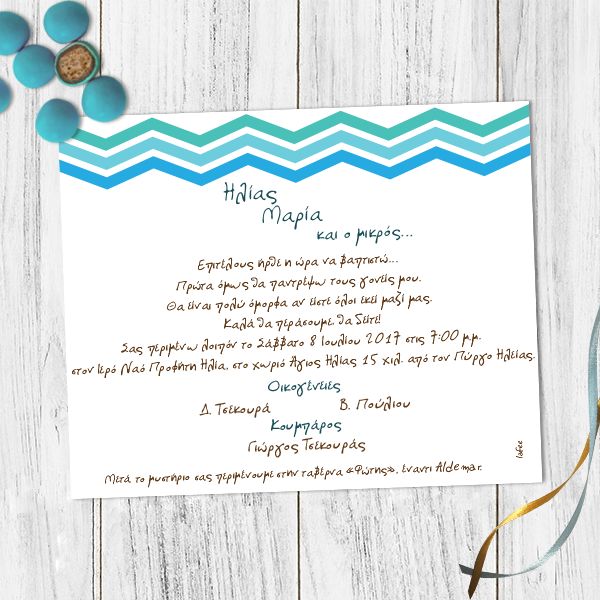 Ηλίας
Μαρία
και ο μικρός...
Επιτέλους ήρθε η ώρα να βαπτιστώ...
Πρώτα όμως θα παντρέψω τους γονείς μου.
Θα είναι πολύ όμορφα αν είστε όλοι εκεί μαζί μας.
Καλά θα περάσουμε, θα δείτε!
Σας περιμένω λοιπόν το Σάββατο 8 Ιουλίου 2017 στις 7:00 μ.μ.
στον Ιερό Ναό Προφήτη Ηλία, στο χωριό Άγιος Ηλίας 15 χιλ. από τον Πύργο Ηλείας.
Οικογένειες
Δ. Τσεκουρά Β. Πούλιου
Κουμπάρος
Γιώργος Τσεκουράς
Μετά το μυστήριο σας περιμένουμε στην ταβέρνα «Φώτης», έναντι Aldemar.